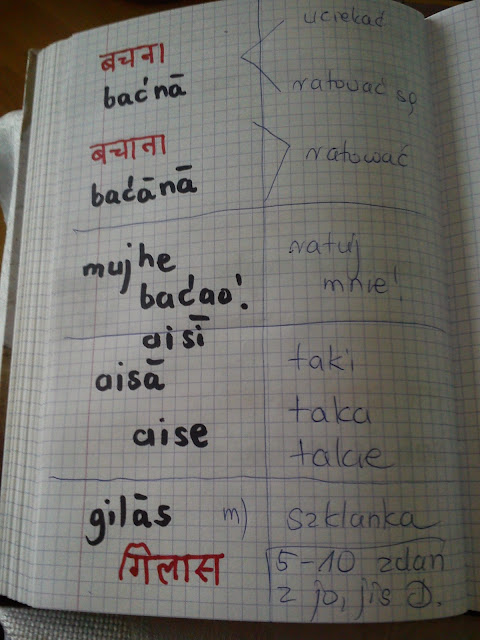 बचना
baćnā
uciekać
ratować są
बचाना
baćānā
ratować
mujhe
baćao!
ratuj
mnie!
aisī
aisā
aise
taki
taka
takie
gilās m)
szklanka
गिलास
5-10 zdan
z jo, jis